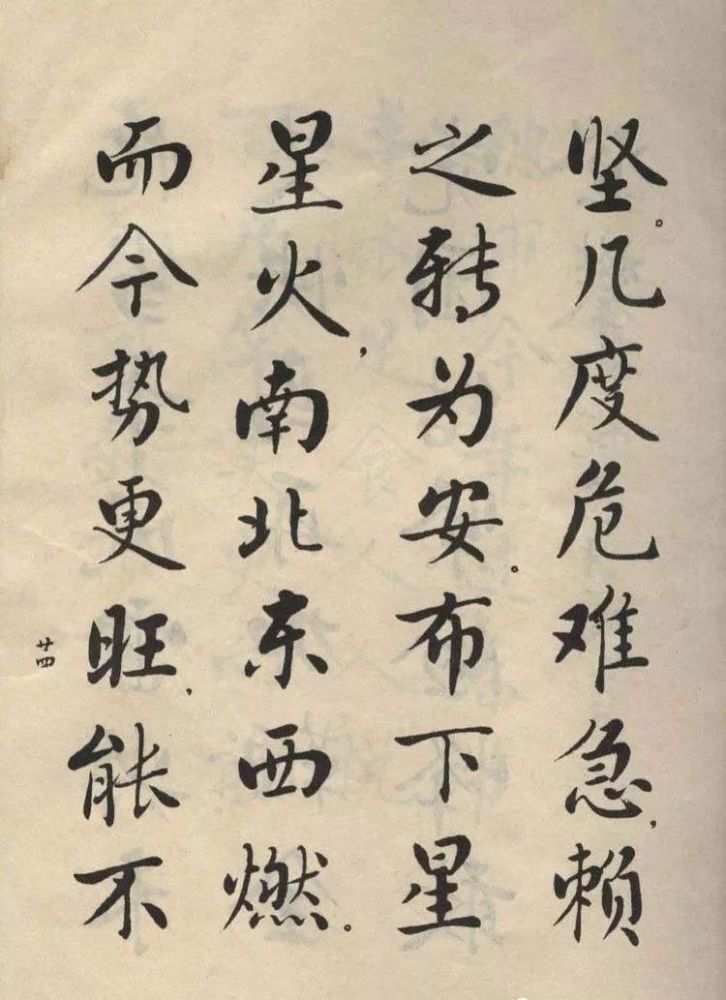 坚。几度危难急，赖
之转为安。布下星
星火，南北东西燃。
而今势更旺，能不
廿四